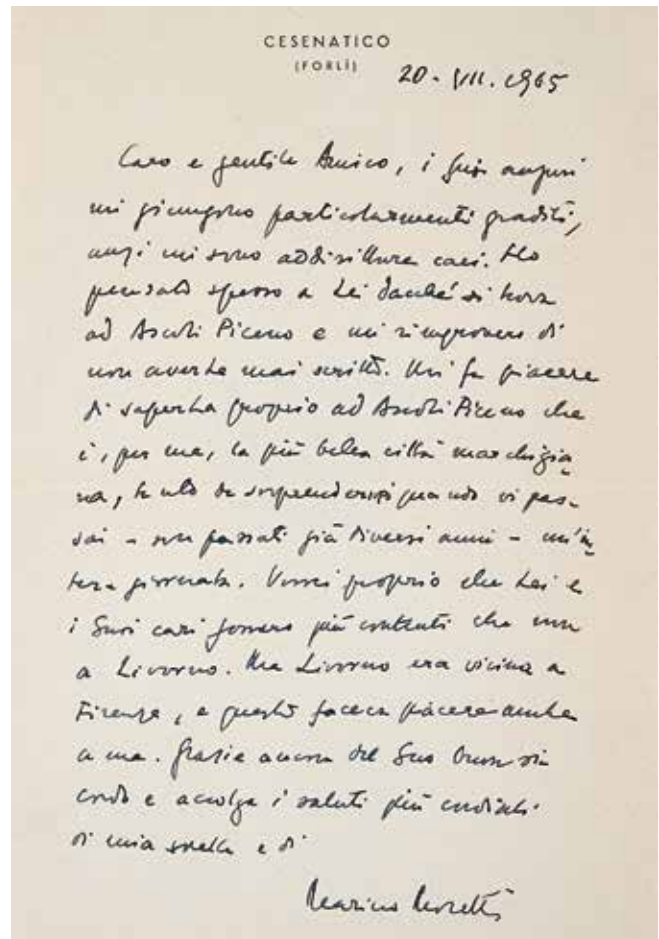 CESENATICO
(FORLÌ)
20. VII. 1965
Caro e gentile Amico, i Suoi auguri
mi giungono particolarmente graditi,
anzi mi sono addirittura cari. Ho
pensato spesso a Lei dacché si trova
ad Ascoli Piceno e mi rimprovero di
non averLe mai scritto. Mi fa piacere
di saperLa proprio ad Ascoli Piceno che
è, per me, la più bella città marchigia-
na, tanto da sorprendermi quando vi pas-
sai - son passati già diversi anni - un'in-
tera giornata. Vorrei proprio che Lei e
i Suoi cari fossero più contenti che non
a Livorno. Ma Livorno era vicina a
Firenze, e questo faceva piacere anche
a me. Grazie ancora del Suo buon ri-
cordo e accolga i saluti più cordiali
di mia sorella e di
Marino Moretti